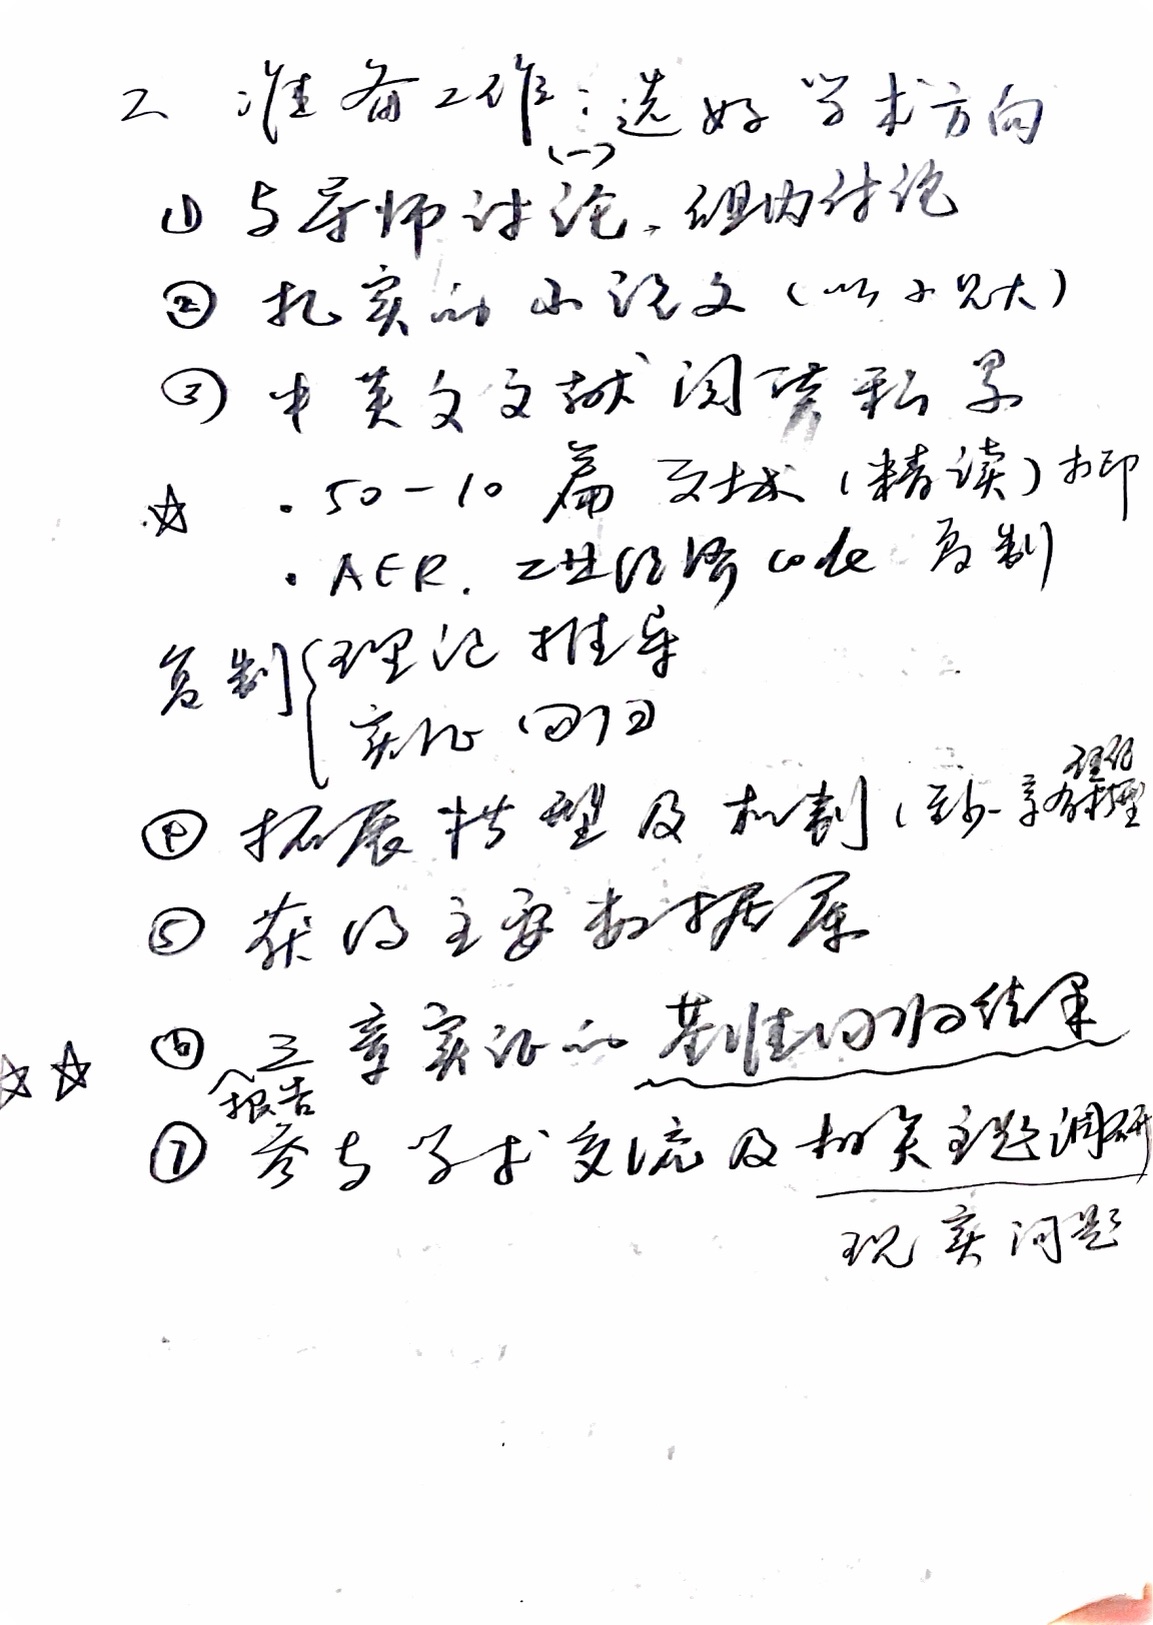 二 准备工作：选好学术方向
(一)
① 与导师讨论、组内讨论
② 扎实的小论文（以小见大）
③ 中英文文献阅读积累
☆ · 50-10 篇文献（精读）打印
· AER. 工业经济 code 复制
复制{理论推导
实证回归
④ 拓展模型及机制（至少一章有理论模型
⑤ 获得主要数据库
☆☆ ⑥ 三章实证的基准回归结果
报告
⑦ 参与学术交流及相关主题调研
现实问题